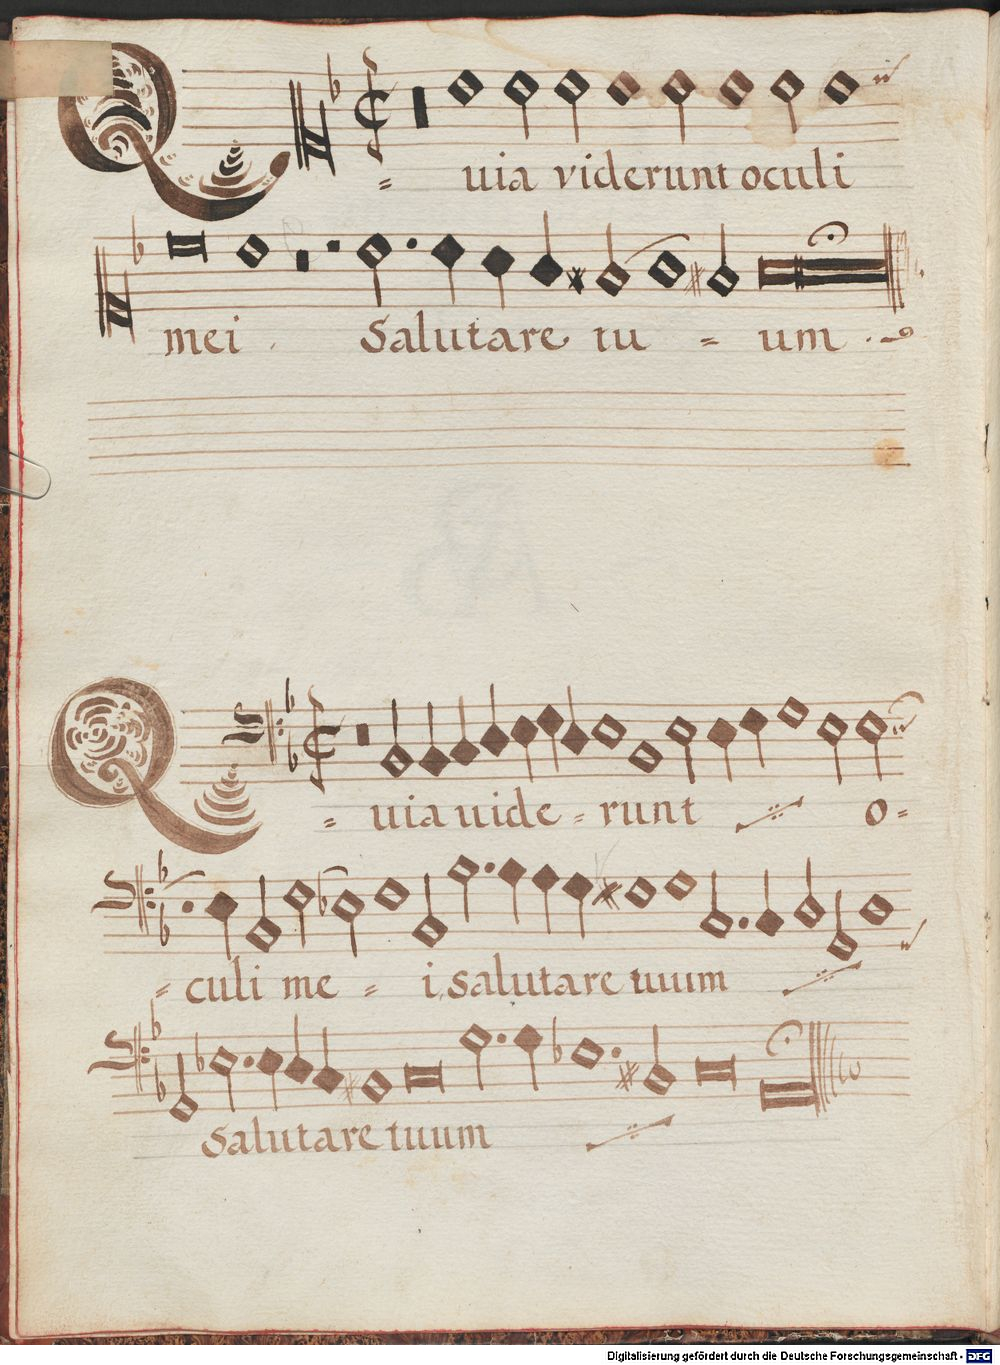 Quia viderunt oculi
mei. Salutare tu = um.
Quia uide = runt o =
= culi me = i, salutare tuum
Salutare tuum
Digitalisierung gefördert durch die Deutsche Forschungsgemeinschaft - DFG